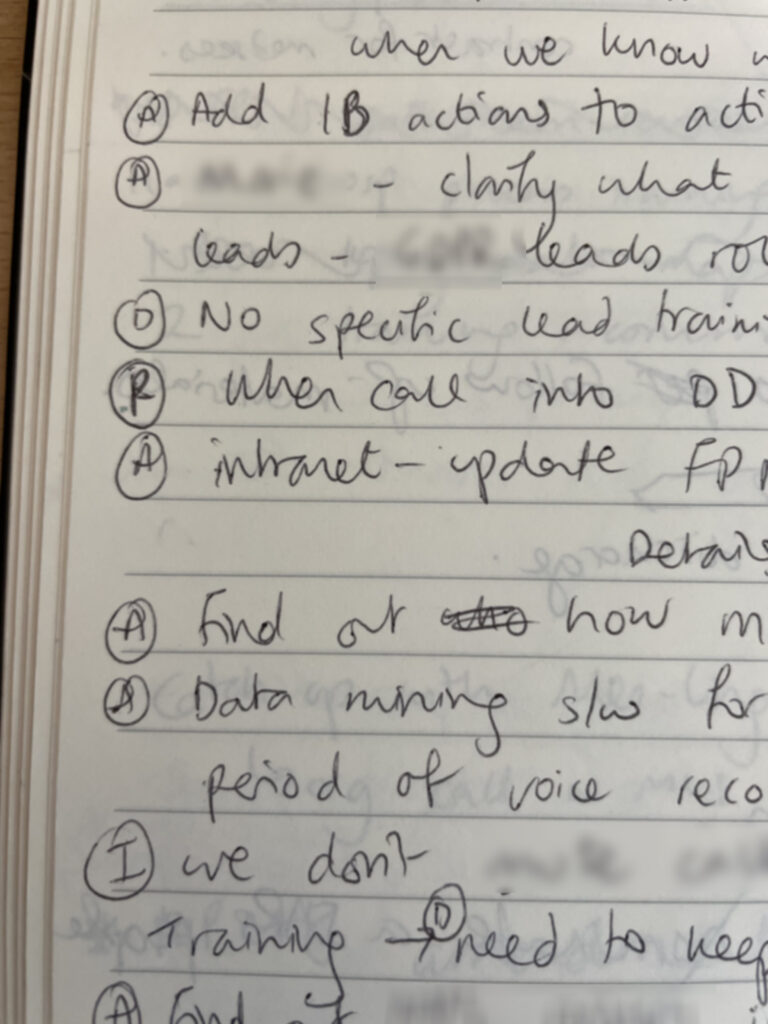 when we know
(A) Add IB actions to acti
(A) - clarify what
leads - leads rol
(D) No specific lead traini
(R) When call into DD
(A) intranet - update FP
Details
(A) Find out how m
(A) Data mining s/w for
period of voice reco
(I) we don't
Training → (D) need to keep
(A) Find of